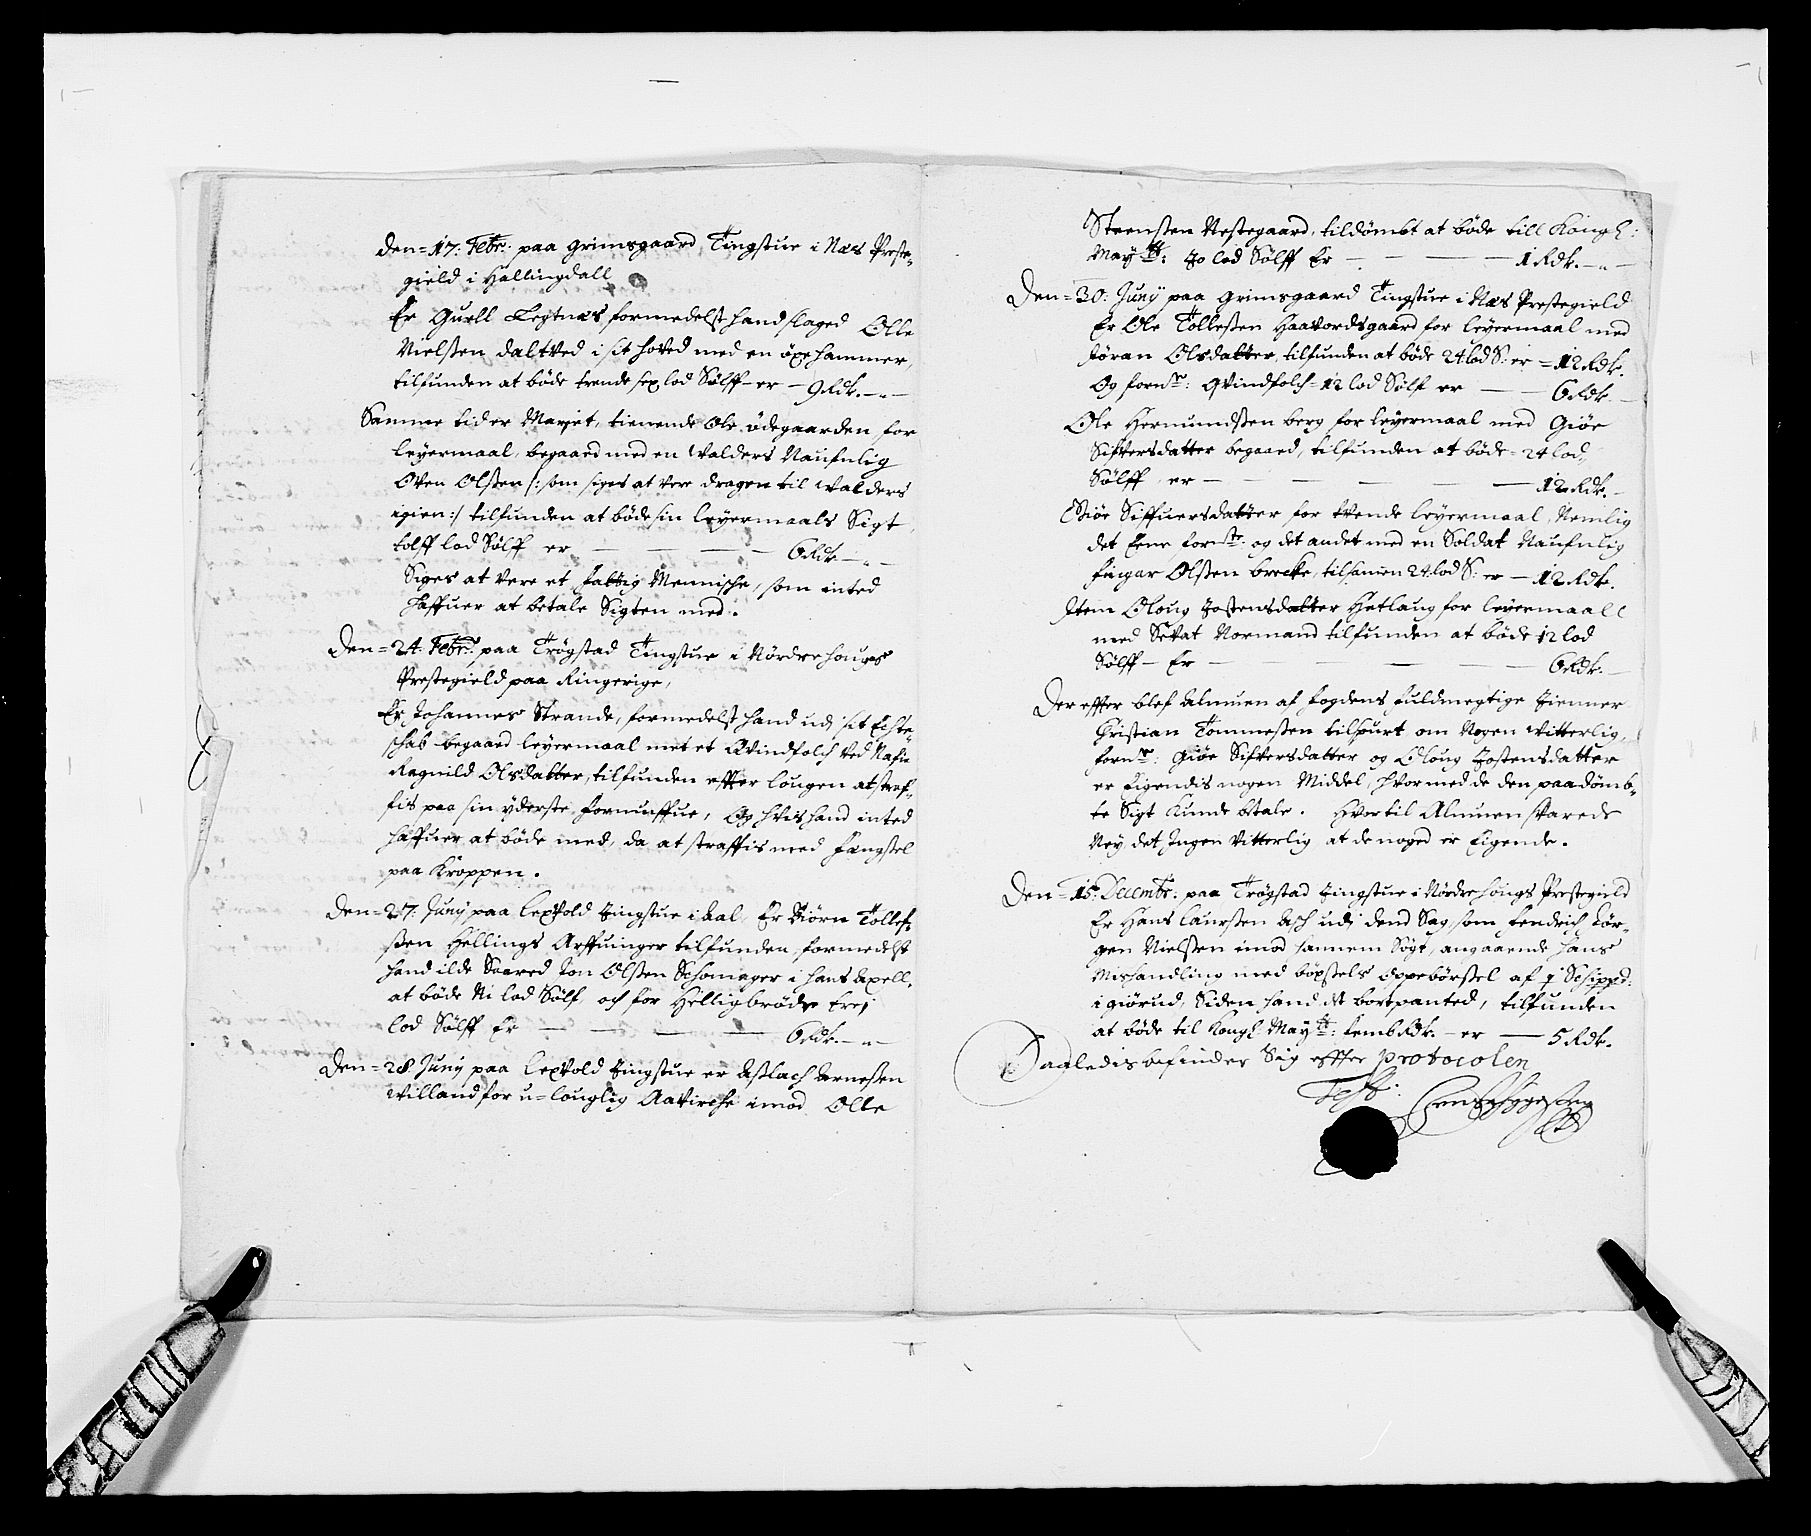 den = 17: Febr: paa Grimsgaard Tingstue i Næs Preste-
gield i Hallingdall
Er Guell Legtnæs formedelst hand slaged Olle
Nielssen daltved i sit hoved med en öxehammer,
tilfunden at böde trende sex lod Sølff er – 9 Rdr. – " –
Samme tid er Marjet, tienende Ole ödegaarden for
leyermaal, begaaed med en Walders Naufnlig
Oven Olssen /: som siges at vere dragen til Walders
igien :/ tilfunden at böde sin leyermaals Sigt
tolff lod Sølff er – – – 6 Rdr. – " –
Siges at vere et fattig Mennische, som inted
haffuer at betale Sigten med.
Den = 24. Febr: paa Trögstad Tingstue i Nördrehougs
Prestegield paa Ringerige,
Er Johannes Strande, formedelst hand udj sit Echte-
schab begaaed leyermaal met et Qvindfolch ved Nafn
Ragnild Olsdatter, tilfunden effter lougen at straf-
fis paa sin yderste formuffue, Og hvis hand inted
haffuer at böde med, da at straffis med fængsel
paa Kroppen.
Den = 27: Juny paa lexvold Tingstue i Aal, Er Biörn Tollef-
ssen Hellings Arffuinger tilfunden, formedelst
hand ilde Saared Jon Olssen Schomager i hans Axell.
at böde Ni lod Sølf, och for Helligbröde trej
lod Sølff Er – – – 6 Rdr. – " –
Den = 28 Juny paa lexvold Tingstue er Asslach Arnessen
Willand for u=louglig Aavirche imod Olle
Steenssen Nestegaard, tildömbt at böde till Kongl:
Maytt: To lod Sølff Er – – – 1 Rdr. – " –
Den = 30: Juny paa Grimsgaard Tingstue i Næs Prestegield
Er Ole Tollessen Haavordsgaard for leyermaal med
Jöran Olsdatter, tilfunden at böde 24 lod S: er – 12 Rdr.
Og fornte: Qvindfolch = 12 lod Sølf er – – 6 Rdr. –
Ole Hermundssen berg for leyermaal med Giöe
Sifversdatter begaaed, tilfunden at böde = 24 lod,
Sølff er – – – – 12 Rdr. –
Giöe Siffuersdatter for tvende leyermaal, Nemlig
det Eene fornte: og det andet med en Soldat Naufnlig
fingar Olssen brecke, tilsamen 24 lod S: er – 12 Rdr.
Item Oloug Jostensdatter Hetlaug for leyermaall
med Sevat Normand tilfunden at böde 12 lod
Sølff – Er – – – – 6 Rdr. –
Der effter blef Almuen af fogdens fuldmegtige Tienner
Christian Tommessen tilspurt om Nogen Witterlig,
fornte: Giöe Sifversdatter og Oloug Jostensdatter
er Eigendis nogen Middel, hvormed de den paadömb-
te Sigt Kunde betale. Hvortil Almuen svarede
Ney det Ingen Vitterlig at de noged er Eigende.
Den = 15. Decembr: paa Trögstad Tingstue i Nördrehougs Prestegield
Er Hans laurssen Asch udj dend Sag, som fendrich Jör-
gen Nielssen imod hannem Sögt, angaaende hans
Mishandling med oppebörssel af
i giörud, Siden hand det bortpanted, tilfunden
at böde til Kongl Maytt: femb Rdr. – er – 5 Rdr.
Saaledis befindes Sig effter protocolen
Test: